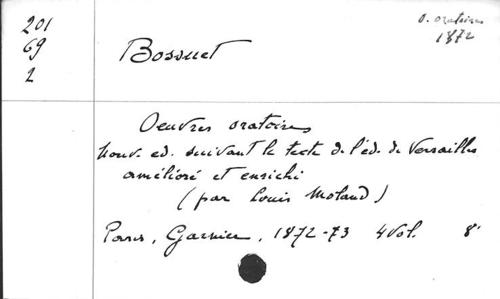 201
69
2
Bossuet
O. oratoires
1872
Oeuvres oratoires
Nouv. ed. suivant le texte de l'éd. de Versailles
amélioré et enrichi
(par Louis Moland)
Paris, Garnier, 1872-73 4 Vol. 8°